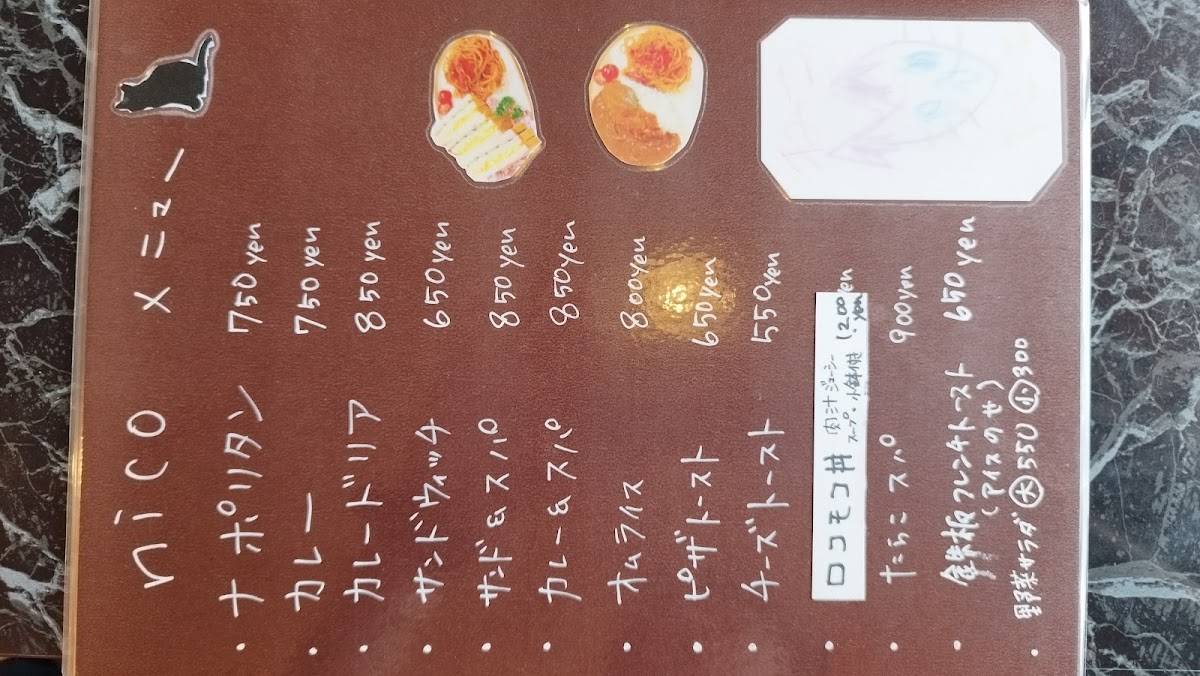 nico メニュー
・ナポリタン 750yen
・カレー 750yen
・カレードリア 850yen
・サンドウィッチ 650yen
・サンド&スパ 850yen
・カレー&スパ 850yen
・オムライス 800yen
・ピザトースト 650yen
・チーズトースト 550yen
・ロコモコ丼 肉汁ジューシー スープ・小鉢付き 1,200yen
・たらこスパ 900yen
・鉄板フレンチトースト 650yen
(アイスのせ)
・野菜サラダ 大 550 小 300